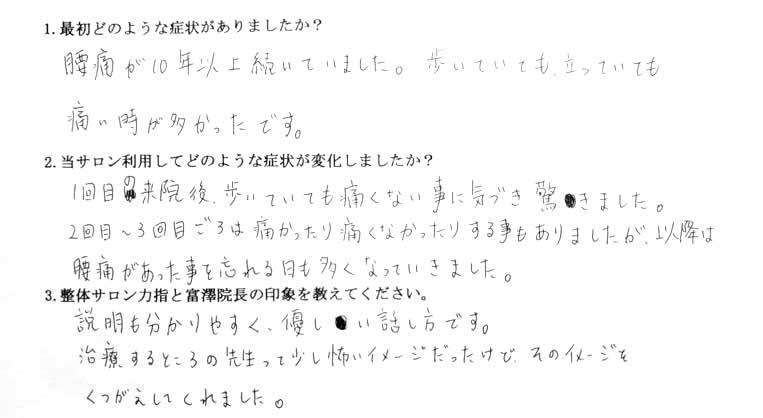 1.最初どのような症状がありましたか？
腰痛が10年以上続いていました。歩いていても、立っていても
痛い時が多かったです。
2.当サロン利用してどのような症状が変化しましたか？
1回目の来院後、歩いていても痛くない事に気づき驚きました。
2回目～3回目ごろは痛かったり痛くなかったりする事もありましたが、以降は
腰痛があった事を忘れる日も多くなっていきました。
3.整体サロン力指と富澤院長の印象を教えてください。
説明も分かりやすく、優しい話し方です。
治療するところの先生って少し怖いイメージだったけど、そのイメージを
くつがえしてくれました。